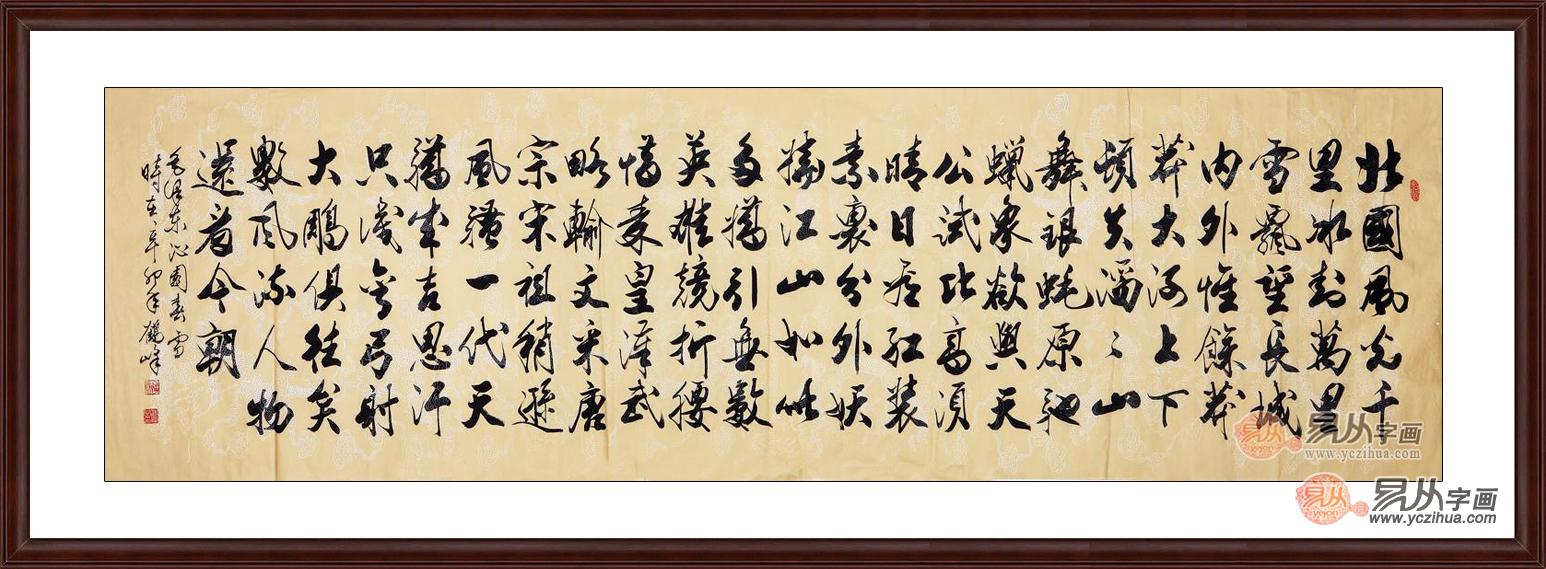 北國風光千
里冰封萬里
雪飄望長城
内外惟餘莽
莽大河上下
頓失滔〻山
舞銀蛇原馳
蠟象欲與天
公試比高須
晴日看紅裝
素裹分外妖
嬌江山如此
多嬌引無數
英雄競折腰
惜秦皇漢武
略輸文采唐
宗宋祖稍遜
風騷一代天
驕成吉思汗
只識彎弓射
大鵬俱往矣
數風流人物
還看今朝
毛澤東沁園春雪
時在辛卯年鶴峰
易从字画
www.yczihua.com
易从
yejon
易从字画
www.yczihua.com